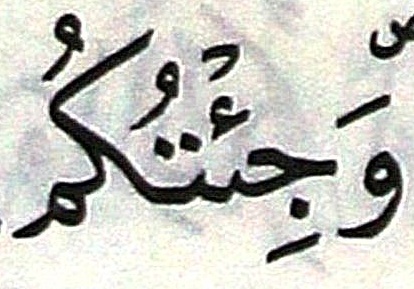 وَجِئْتُكُم